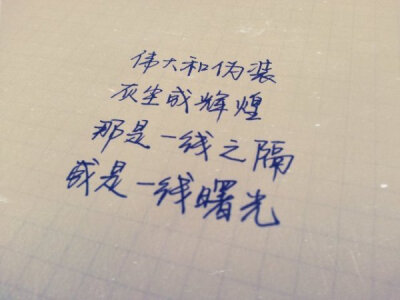 伟大和伪装
灰尘或辉煌
那是一线之隔
或是一线曙光